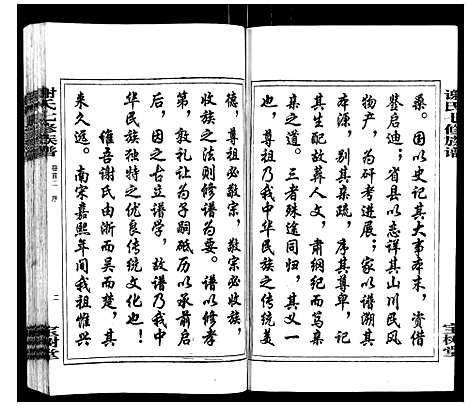 谢氏七修族谱
宝树堂
桑。国以史记其大事本末，资借
鉴启迪；省县以志详其山川民风
物产，为研考进展；家以谱溯其
本源，别其亲疏，序其尊卑，记
其生配故葬人文，肃纲纪而笃亲
亲之道。三者殊途同归，其义一
也，尊祖乃我中华民族之传统美
德，尊祖必敬宗，敬宗必收族，
收族之法则修谱为要。谱以修孝
第，敦礼让为子嗣砥历以承前启
后，因之古立谱学，故谱乃我中
华民族独特之优良传统文化也！
惟吾谢氏由浙而吴而楚，其
来久远。南宋嘉熙年间我祖惟兴
谢氏七修族谱
卷首二
序
二
宝树堂